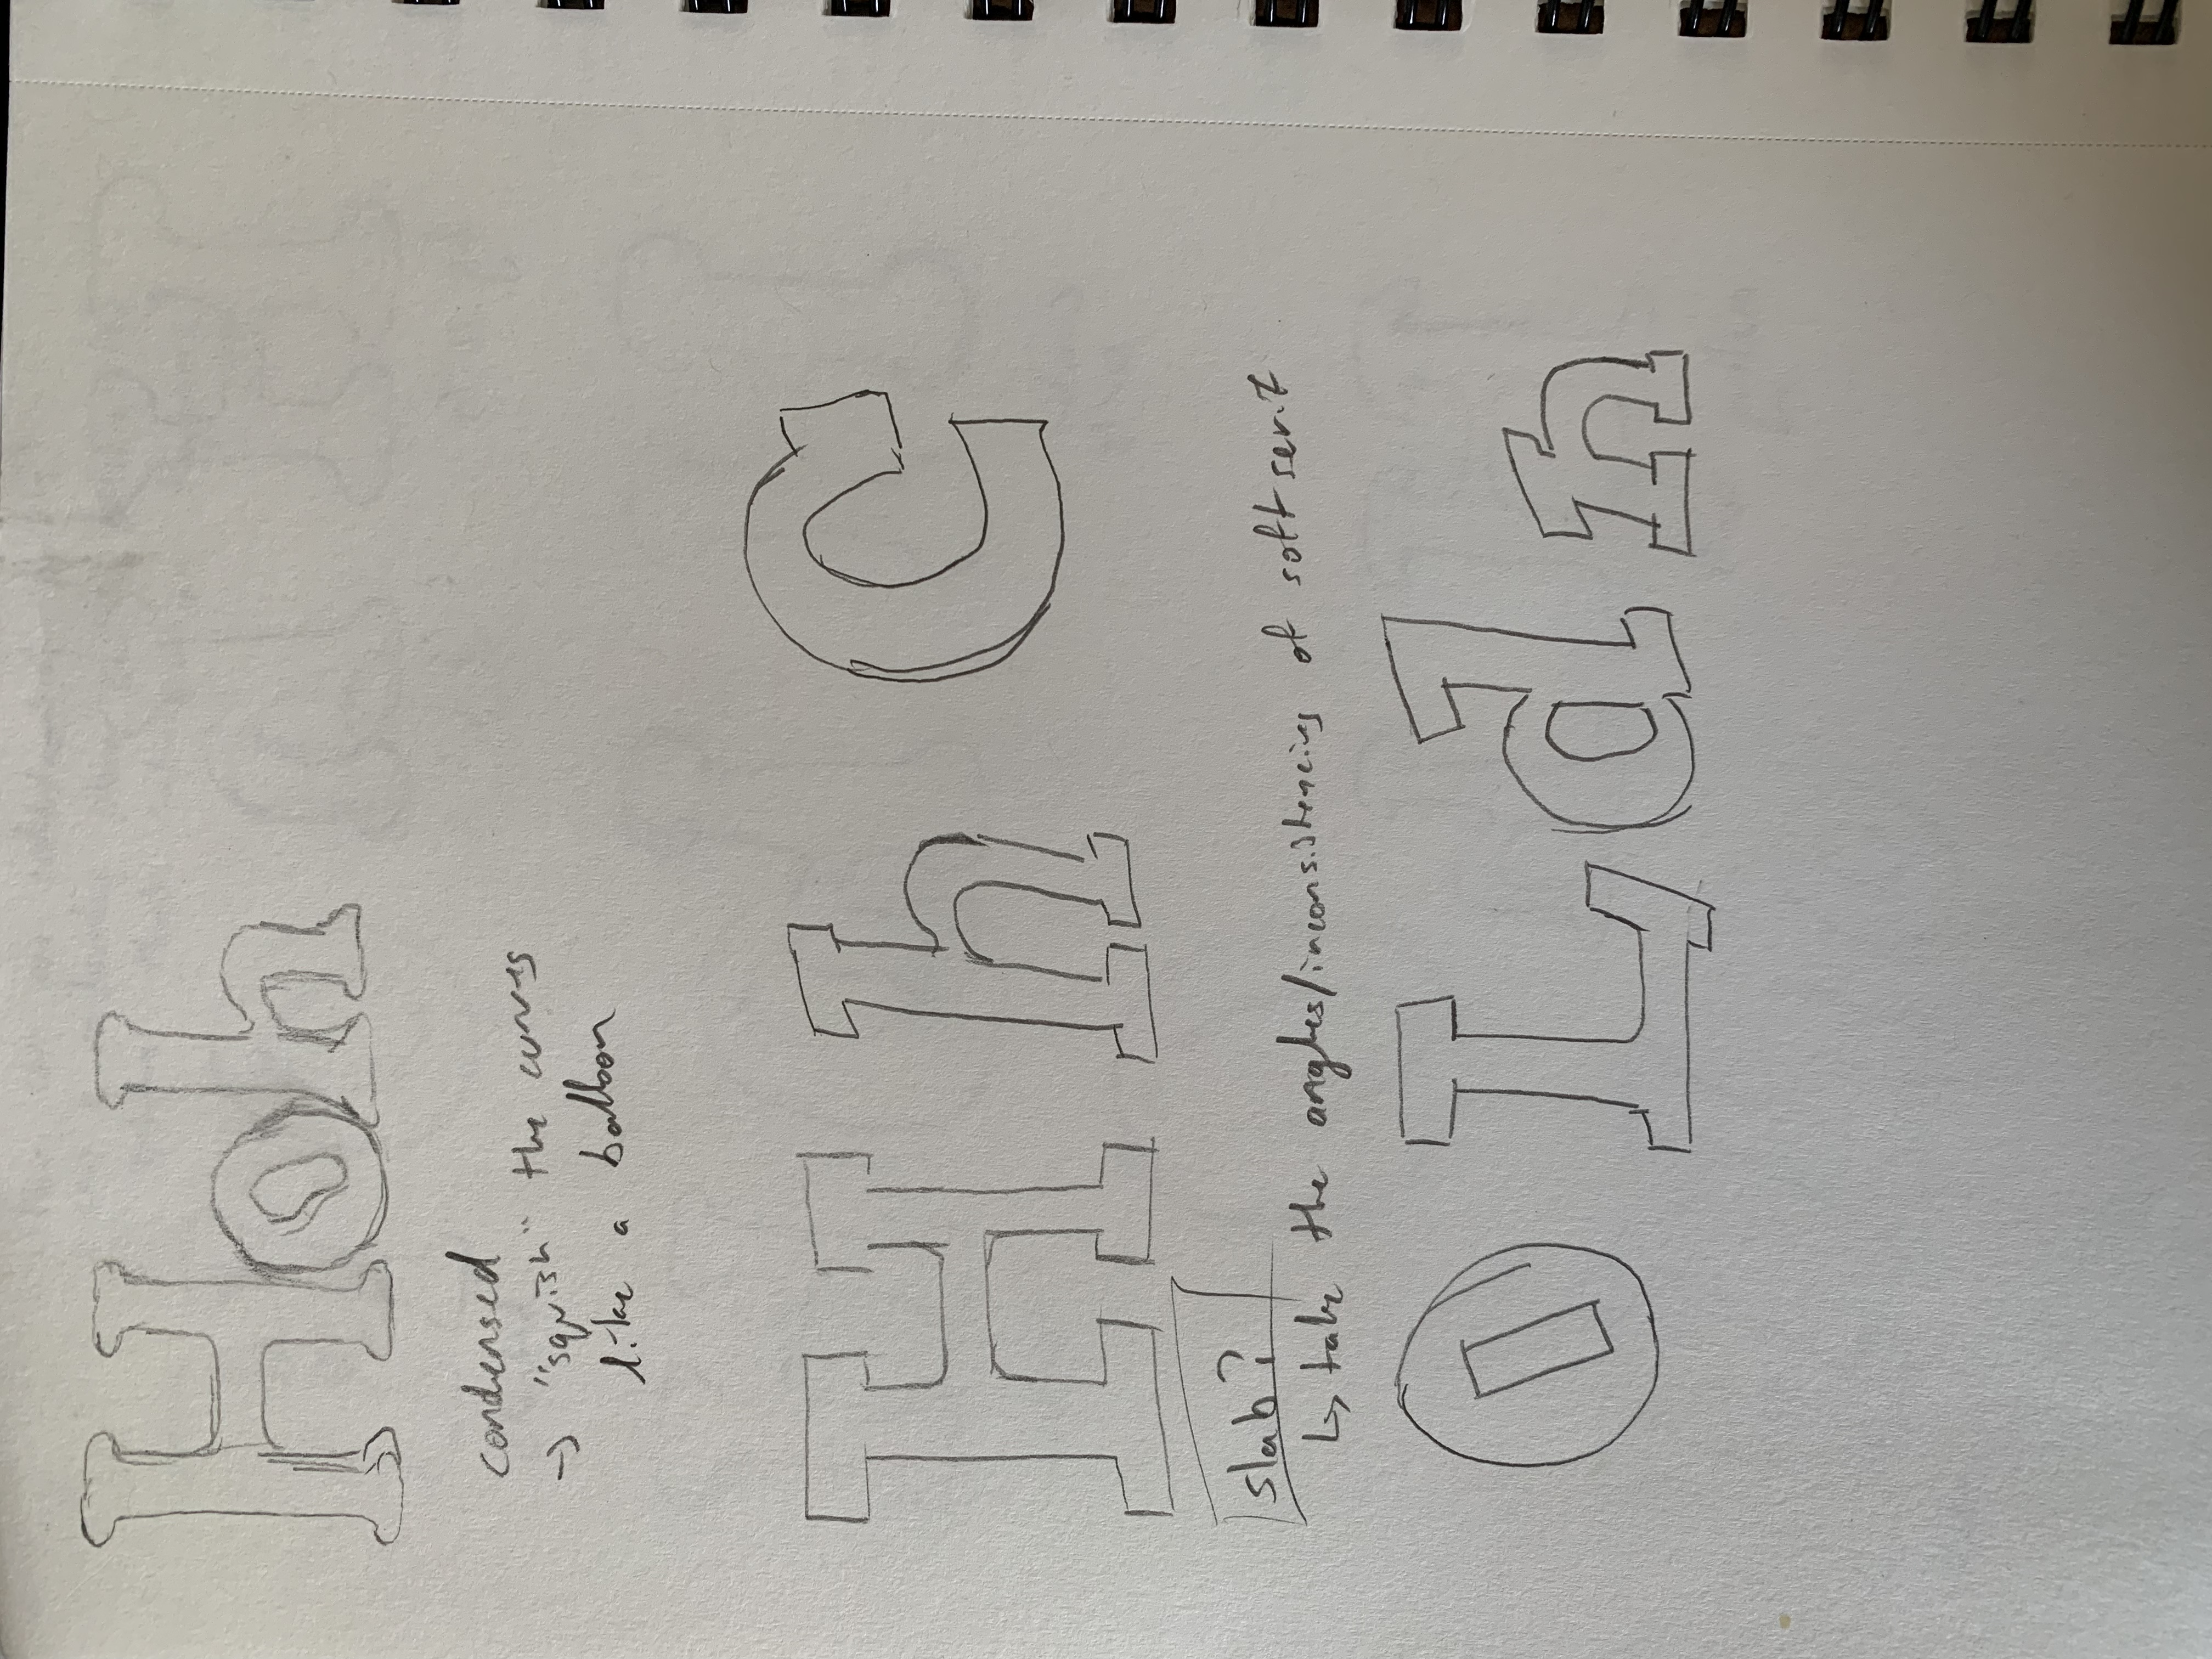 Hoh
condensed
→ "squish" the curves
like a balloon
H h C
slab?
↳ take the angles/inconsistencies of soft serif
O L d n